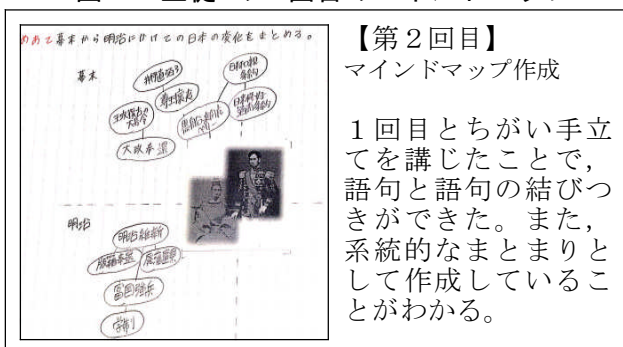 めあて幕末から明治にかけての日本の変化をまとめる。
幕末
井伊直弼
尊王攘夷
王政復古の
大号令
大政奉還
日米和親
条約
日米修好
通商条約
明治
明治維新
版籍奉還
廃藩置県
富国強兵
学制
【第２回目】
マインドマップ作成
１回目とちがい手立
てを講じたことで，
語句と語句の結びつ
きができた。また，
系統的なまとまりと
して作成しているこ
とがわかる。